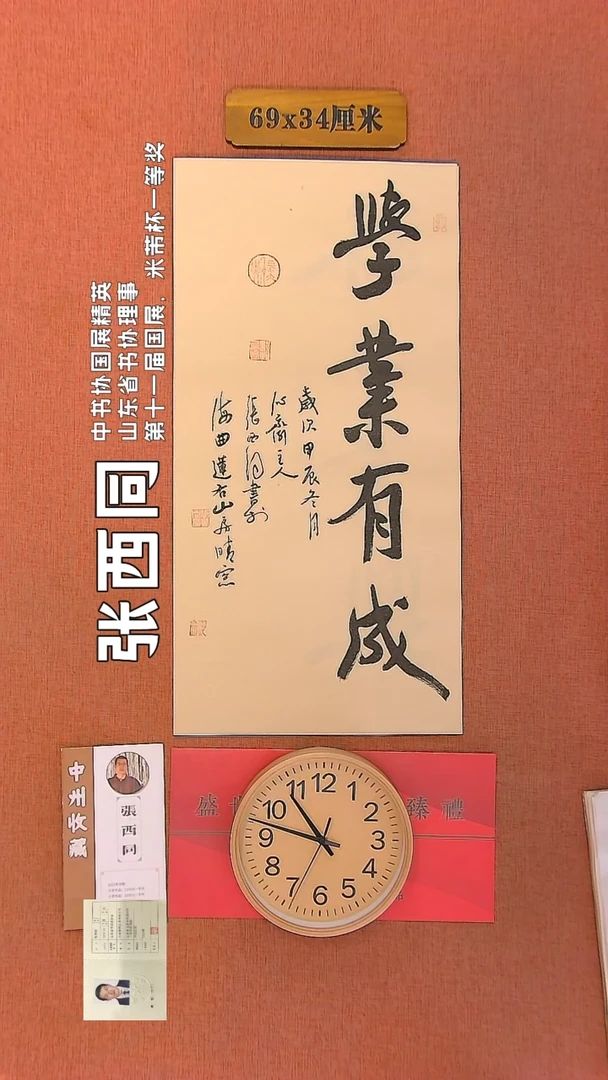 69x34厘米
學業有成
歲次甲辰冬月
心齋主人
張西同書於
海曲蓮右山房晴窓
中书协国展精英
山东省书协理事
第十一届国展，米芾杯一等奖
张西同
張西同
盛世
臻禮
12
1
2
3
4
5
6
7
8
9
10
11